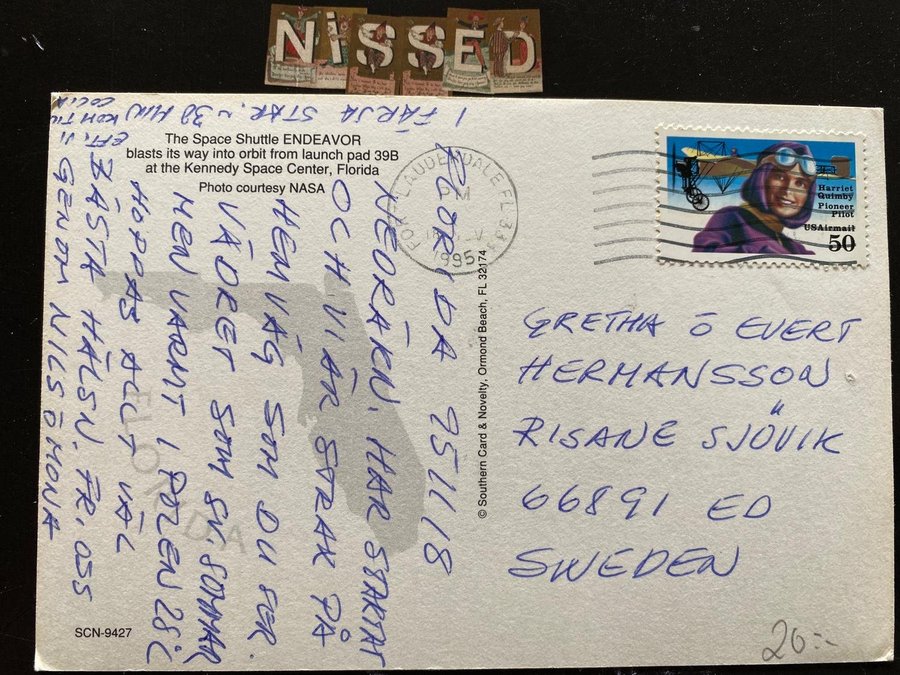 NiSSED
The Space Shuttle ENDEAVOR
blasts its way into orbit from launch pad 39B
at the Kennedy Space Center, Florida
Photo courtesy NASA
FLORIDA 951118
NEDRÄKN. HAR STARTAT
OCH VI ÄR STRAX PÅ
HEMVÄG SOM DU SER.
VÄDRET SOM SV. SOMMAR
MEN VARMT I POLEN 28°C
HOPPAS ALLT VÄL
BÄSTA HÄLSN. FR. OSS
GENOM NILS Ö MONA
I FÄRJA STAR. ~ 30 MIN
EFT. VI KOM TILL
FLORIDA
SCN-9427
© Southern Card & Novelty, Ormond Beach, FL 32174
FORT LAUDERDALE FL 333
PM
NOV
1995
Harriet
Quimby
Pioneer
Pilot
USAirmail
50
GRETHA Ö EVERT
HERMANSSON
RISANE SJÖVIK
66891 ED
SWEDEN
20:-